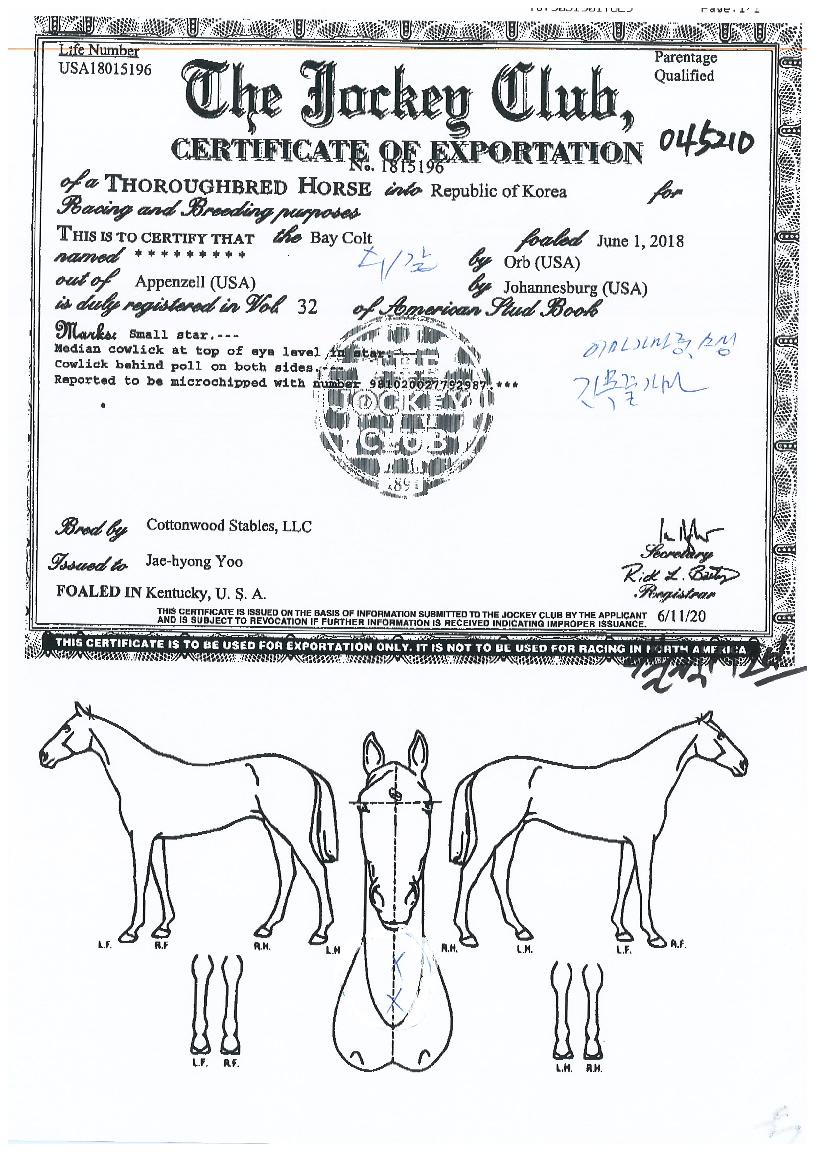 Life Number
USA18015196
Parentage
Qualified
The Jockey Club,
CERTIFICATE OF EXPORTATION
045210
No. 1815196
of a THOROUGHBRED HORSE into Republic of Korea for
Racing and Breeding purposes
THIS IS TO CERTIFY THAT the Bay Colt foaled June 1, 2018
named * * * * * * * * * by Orb (USA)
out of Appenzell (USA) by Johannesburg (USA)
is duly registered in Vol. 32 of American Stud Book
Marks: Small star.---
Median cowlick at top of eye level in star.---
Cowlick behind poll on both sides.---
Reported to be microchipped with number 981020027792987.***
THE
JOCKEY
CLUB
1894
Bred by Cottonwood Stables, LLC
Issued to Jae-hyong Yoo
Secretary
Rick L. Bailey
Registrar
FOALED IN Kentucky, U. S. A.
THIS CERTIFICATE IS ISSUED ON THE BASIS OF INFORMATION SUBMITTED TO THE JOCKEY CLUB BY THE APPLICANT 6/11/20
AND IS SUBJECT TO REVOCATION IF FURTHER INFORMATION IS RECEIVED INDICATING IMPROPER ISSUANCE.
THIS CERTIFICATE IS TO BE USED FOR EXPORTATION ONLY. IT IS NOT TO BE USED FOR RACING IN NORTH AMERICA
L.F. R.F. R.H. L.H R.H. L.H. L.F. R.F.
L.F. R.F. L.H. R.H.